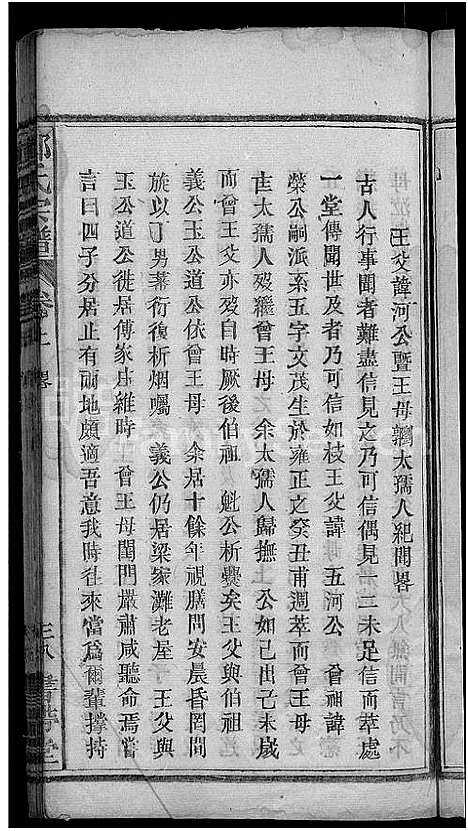 王父諱河公暨王母鸝太孺人紀聞畧
古人行事聞者難盡信見之乃可信偶見一二未足信而萃處
一堂傳聞世及者乃可信如枝王父諱 五河公 曾祖諱
榮公嗣派系五字文茂生於雍正之癸丑甫週萃而王母
庄太孺人歿繼曾王母 余太孺人歸撫王 公如己出乙未歲
而曾王父亦歿自時厥後伯祖 魁公析爨矣王父與伯祖
義公玉公道公依曾王母 余居十餘年視膳問安晨昏罔間
旋以丁男蕃衍復析烟囑 義公仍居梁家灘老屋 王父與
玉公道公徙居傅家庄維時 曾王母閨門嚴肅咸聽命焉嘗
言曰四子分居止有兩地頗適吾意我時往來當為爾輩撐持
氏宗譜